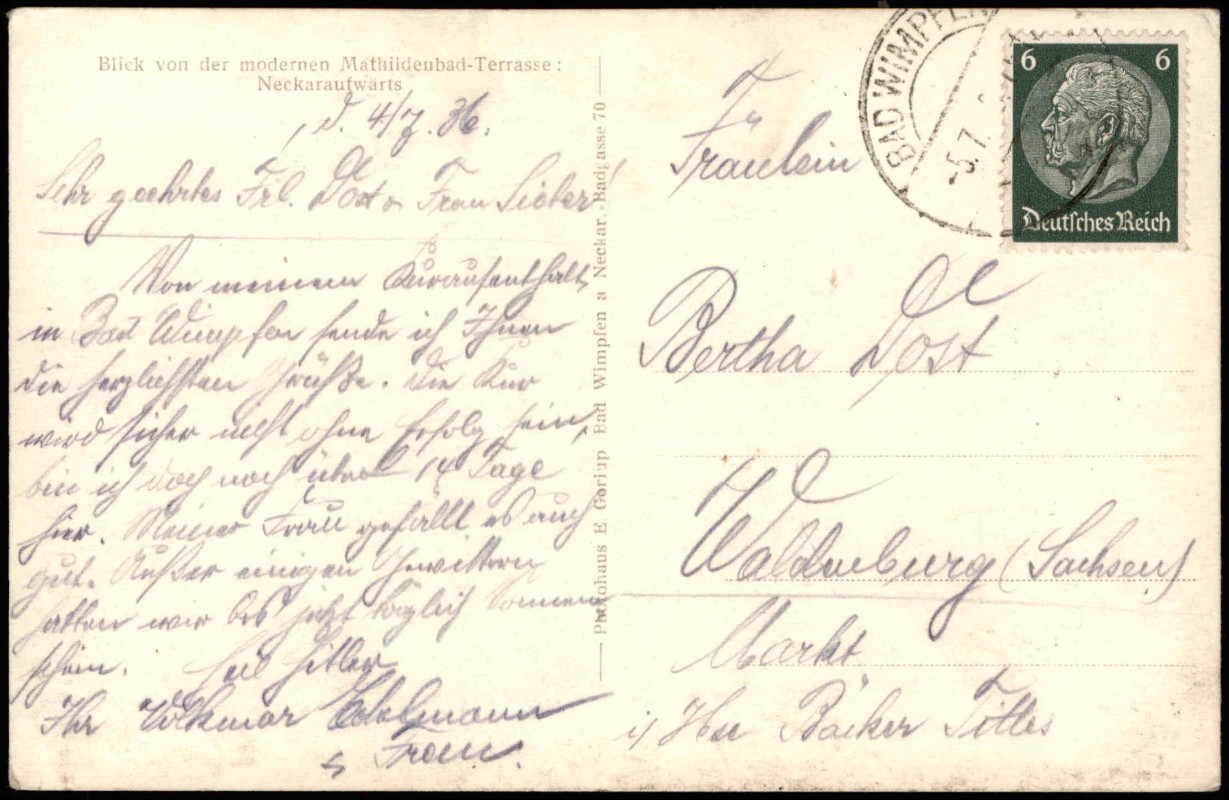 Blick von der modernen Mathildenbad-Terrasse:
Neckaraufwärts
, d. 4/7. 36.
Sehr geehrtes Frl. Dost u. Frau Sieber!
Von meinem Kuraufenthalt
in Bad Wimpfen sende ich Ihnen
die herzlichsten Grüße. Die Kur
wird sicher nicht ohne Erfolg sein,
bin ich doch noch über 14 Tage
hier. Meiner Frau gefällt es auch
gut. Außer einigen Gewittern
hatten wir bis jetzt täglich Sonnen
schein. Heil Hitler
Ihr Volkmar Edelmann
u. Frau.
Photohaus E. Goriup Bad Wimpfen a Neckar, Badgasse 70
BAD WIMPFEN
-5.7.
6 6
Deutsches Reich
Fräulein
Bertha Dost
Waldenburg (Sachsen)
Markt
Bäcker